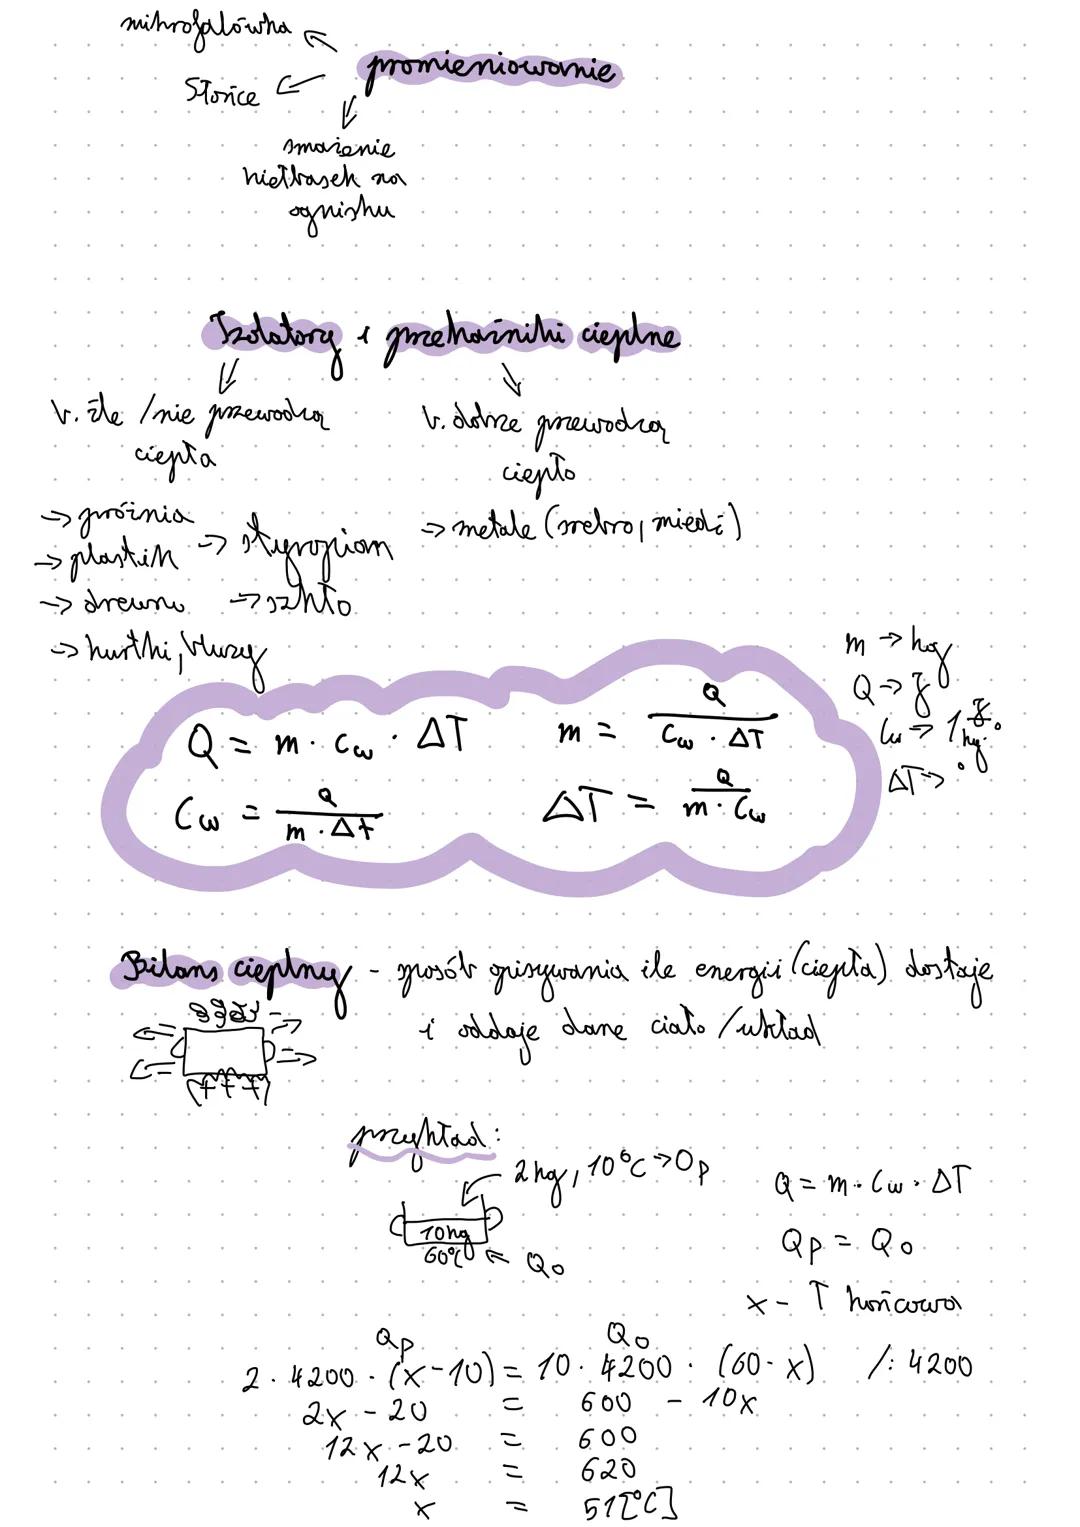 mikrofalówka
promieniowanie
Słońce
smażenie
kiełbasek na
ognisku
Izolatory i przekaźniki cieplne
b. źle / nie przewodzą
ciepła
b. dobrze przewodzą
ciepło
→ próżnia
→ plastik
→ drewno
→ kurtki, bluzy
→ styropian
→ szkło
→ metale (srebro, miedź)
m → kg
Q → J
Cw → 1 J/kg·°
ΔT → °
Q = m · Cw · ΔT
m = Q / Cw · ΔT
Cw = Q / m · Δt
ΔT = Q / m · Cw
Bilans cieplny - sposób opisywania ile energii (ciepła) dostaje
i oddaje dane ciało / układ
przykład:
2 kg, 10°C → Qp
10 kg
60°C
Qo
Q = m · Cw · ΔT
Qp = Qo
x - T końcowa
Qp Qo
2 · 4200 · (x-10) = 10 · 4200 · (60-x) /: 4200
2x - 20 = 600 - 10x
12x - 20 = 600
12x = 620
x = 51[°C]